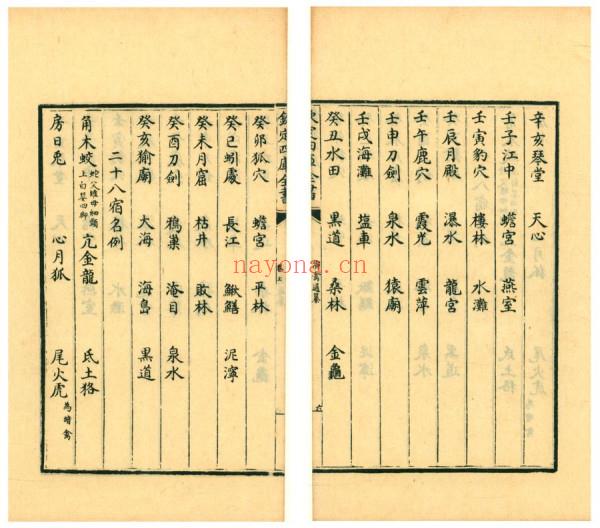 辛亥琴堂　天心
壬子江中　蟾宮　燕室
壬寅豹穴　樓林　水灘
壬辰月殿　瀑水　龍宮
壬午鹿穴　霞光　雲萍
壬申刀劍　泉水　猿廟
壬戌海灘　塩車
癸丑水田　黒道　桑林　金龜
五
欽定四庫全書
癸卯狐穴　蟾宮　平林
癸巳蚓處　長江　鰍鱔　泥濘
癸未月窟　枯井　敗林
癸酉刀劍　鴉巢　淹目　泉水
癸亥　廟　大海　海島　黒道
二十八宿名例
角木蛟　蛇父雉母細頸上白嬰四脚　亢金龍　氐土格
房日兔　心月狐　尾火虎　為暗禽
nayona.cn